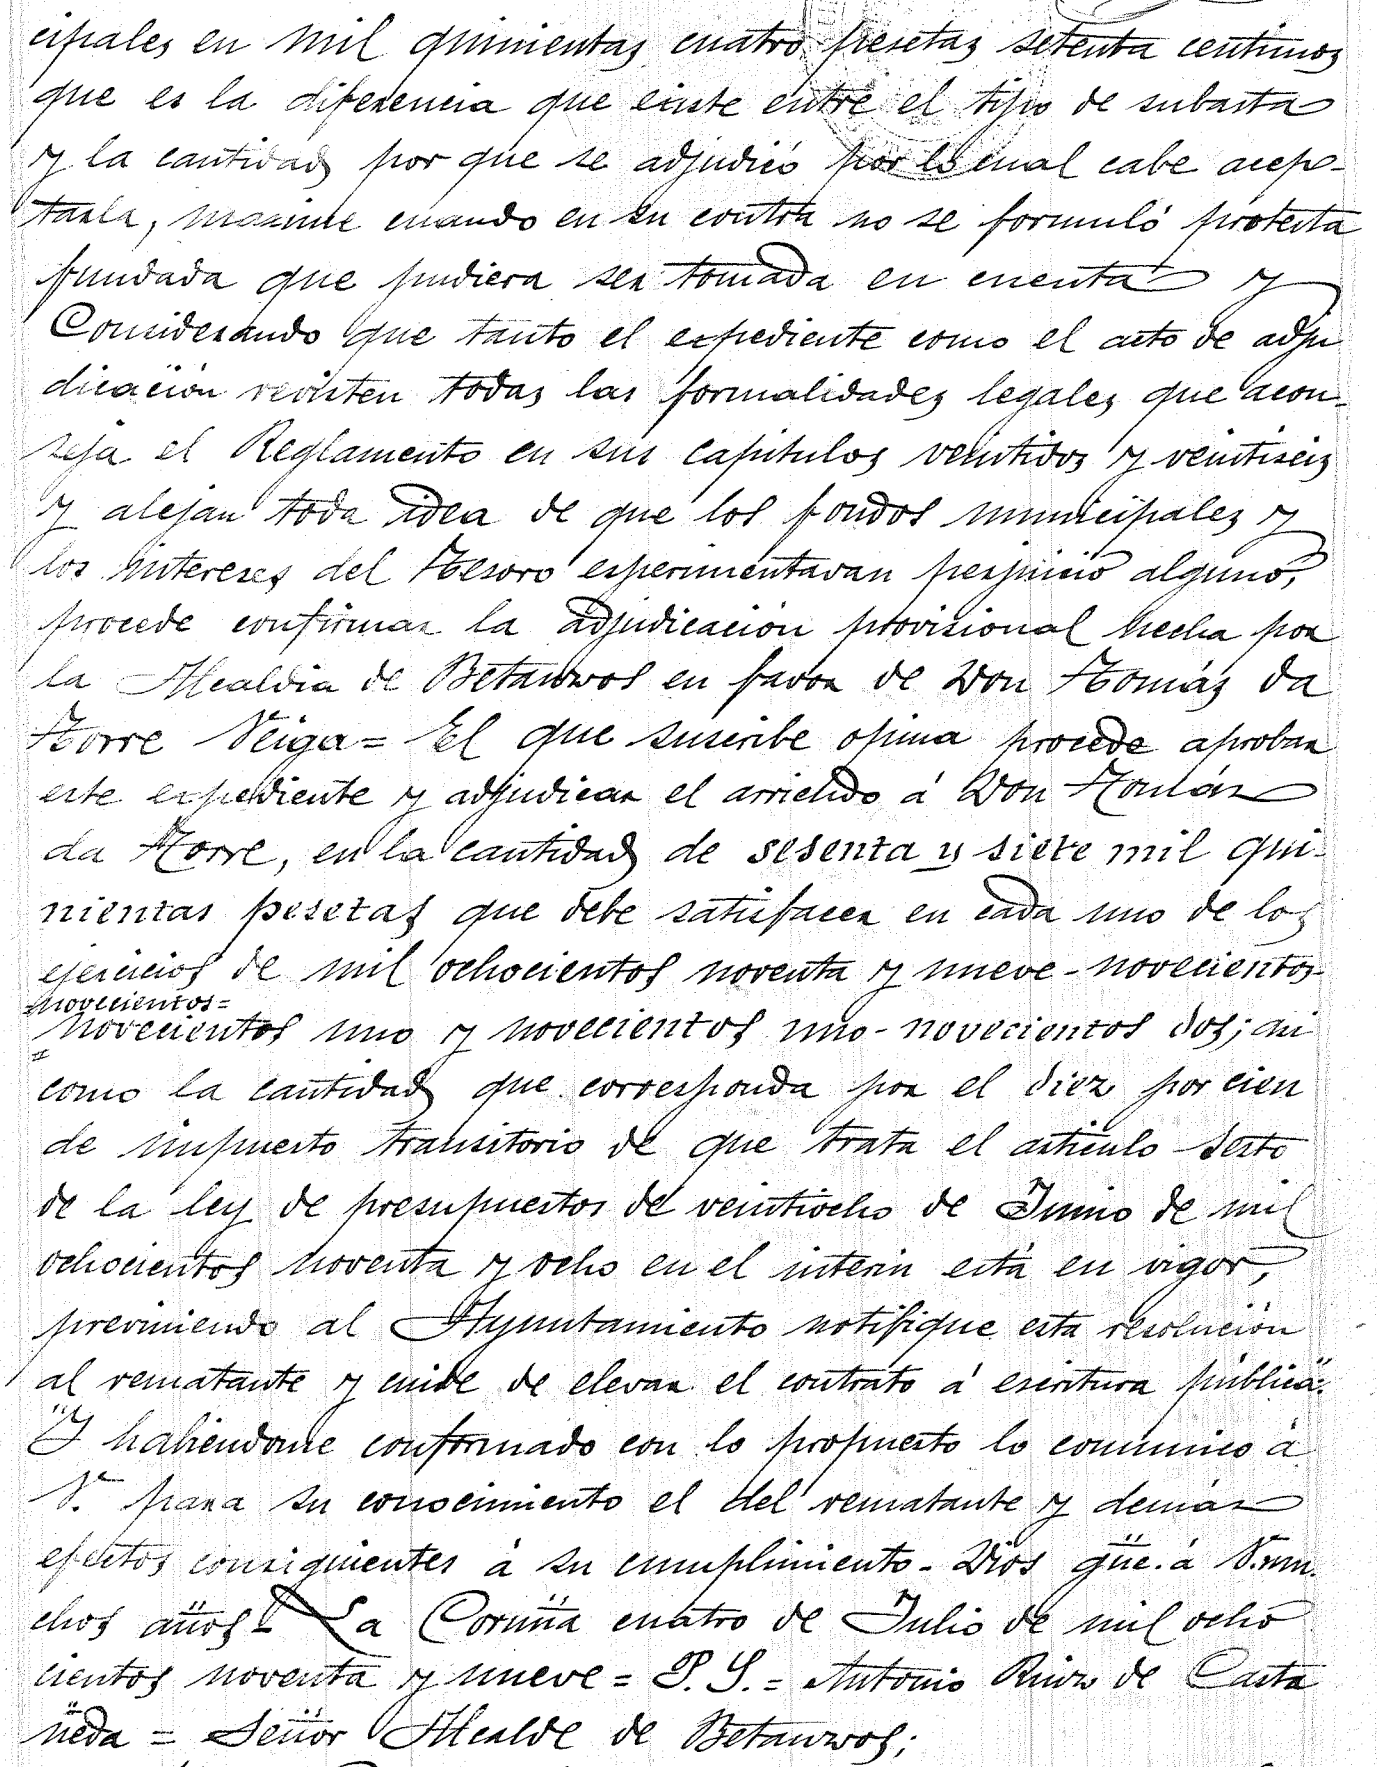 cipales en mil quinientas cuatro pesetas setenta centimos
que es la diferencia que existe entre el tipo de subasta
y la cantidad por que se adjudicó por lo cual cabe acep-
tarla, maxime cuando en su contra no se formuló protesta
fundada que pudiera ser tomada en cuenta y
Considerando que tanto el expediente como el acto de adju
dicación revisten todas las formalidades legales que acon-
seja el Reglamento en sus capitulos veintidos y veintiseis
y alejan toda idea de que los fondos municipales y
los intereses del Tesoro esperimentavan perjuicio alguno,
procede confirmar la adjudicación provisional hecha por
la Alcaldia de Betanzos en favor de Don Tomás da
Torre Veiga = El que suscribe opina procede aprobar
este expediente y adjudicar el arriendo á Don Tomás
da Torre, en la cantidad de sesenta y siete mil qui-
nientas pesetas que debe satisfacer en cada uno de los
ejercicios de mil ochocientos noventa y nueve - novecientos
novecientos =
novecientos uno y novecientos uno - novecientos dos; asi
como la cantidad que corresponda por el diez por cien
de impuesto transitorio de que trata el articulo sesto
de la ley de presupuestos de veintiocho de Junio de mil
ochocientos noventa y ocho en el interin está en vigor,
previniendo al Ayuntamiento notifique esta resolución
al rematante y cuide de elevar el contrato á escritura pública.
Y habiendome conformado con lo propuesto lo comunico á
V. para su conocimiento el del rematante y demás
efectos consiguientes á su cumplimiento - Dios gue. á V. mu
chos años = La Coruña cuatro de Julio de mil ocho
cientos noventa y nueve = P. S. = Antonio Ruiz de Casta
ñeda = Señor Alcalde de Betanzos;